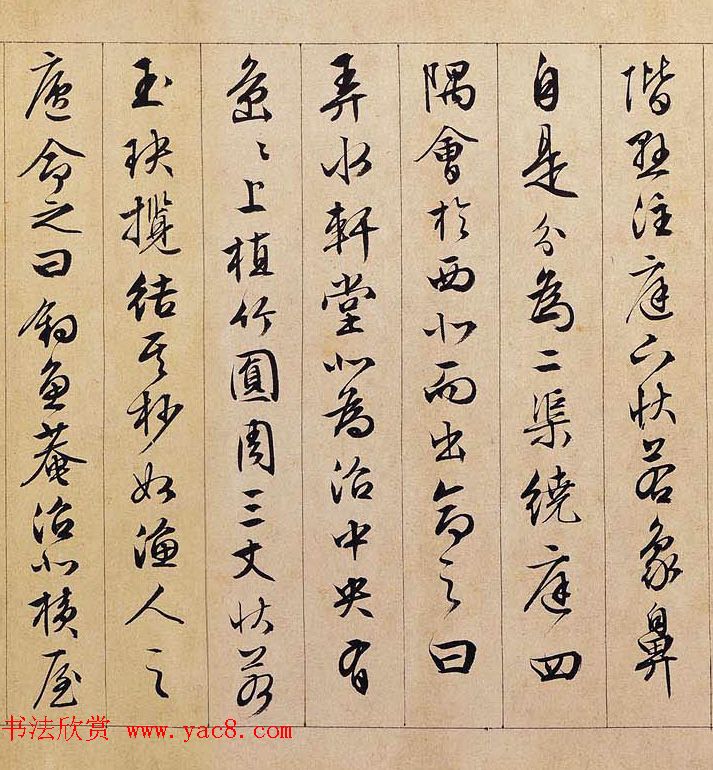 階懸注庭下狀若象鼻
自是分為二渠繞庭四
隅會於西北而出命之曰
弄水軒堂北為沼中央有
島〻上植竹圓周三丈狀若
玉玦攬結其杪如漁人之
廬命之曰釣魚菴沼北橫屋
书法欣赏 www.yac8.com